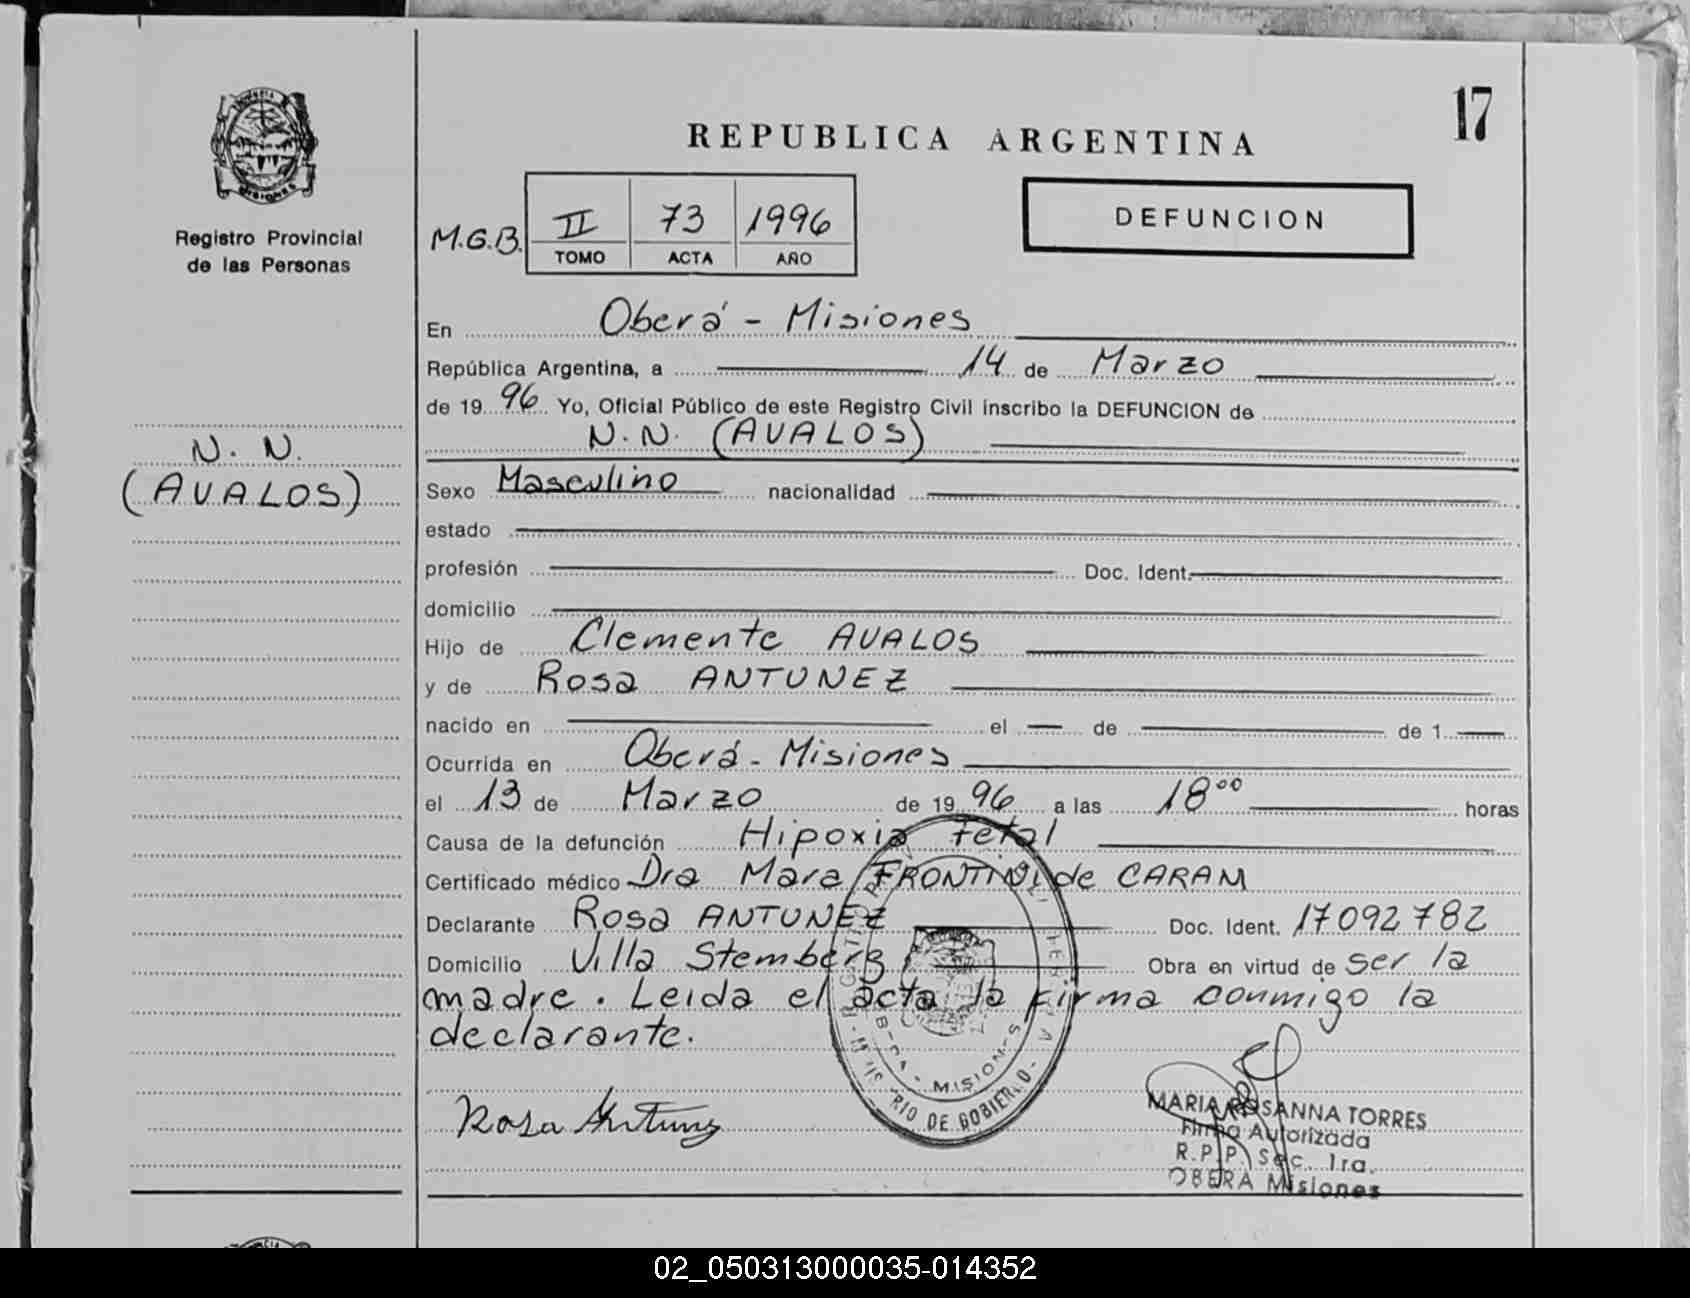 17
REPUBLICA ARGENTINA
MISIONES
Registro Provincial
de las Personas
M.G.B. II 73 1996
TOMO ACTA AÑO
DEFUNCION
En Oberá - Misiones
República Argentina, a 14 de Marzo
de 19 96 Yo, Oficial Público de este Registro Civil inscribo la DEFUNCION de
N.N. (AVALOS)
N. N.
(AVALOS)
Sexo Masculino nacionalidad
estado
profesión Doc. Ident.
domicilio
Hijo de Clemente AVALOS
y de Rosa ANTUNEZ
nacido en el de de 1
Ocurrida en Oberá - Misiones
el 13 de Marzo de 19 96 a las 18 00 horas
Causa de la defunción Hipoxia Fetal
Certificado médico Dra Mara FRONTINI de CARAM
Declarante Rosa ANTUNEZ Doc. Ident. 17092782
Domicilio Villa Stemberg Obra en virtud de ser la
madre. Leida el acta la firma conmigo la
declarante.
MISIONES
RIO DE GOBIERNO
Rosa Antunez
MARIA ROSANNA TORRES
Firma Autorizada
R.P.P. Sec. 1ra.
OBERA Misiones
02_050313000035-014352